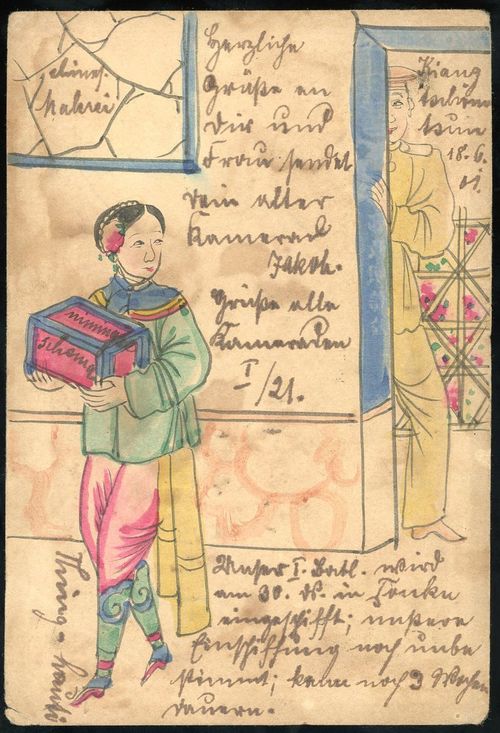 chines.
Malerei
Herzliche
Grüße an
Dir und
Frau sendet
Dein alter
Kamerad
Jakob.
Grüße alle
Kameraden
I/21.
18.6.
01.
Unser I. Batl. wird
am 30. ds. in Tonku
eingeschifft; unsere
Einschiffung noch unbe
stimmt; kann noch 3 Wochen
dauern.